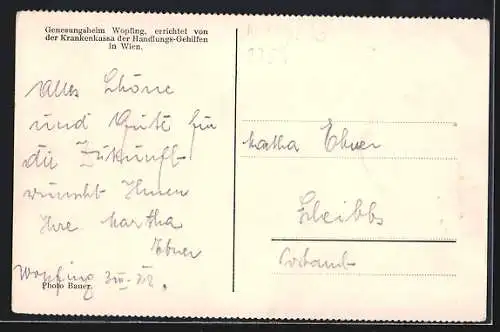 Genesungsheim Wopfing, errichtet von
der Krankenkassa der Handlungs-Gehilfen
in Wien.
Alles Schöne
und Gute für
die Zukunft
wünscht Ihnen
Ihre Martha
Ebner
Wopfing
Photo Bauer.
Martha Ebner
Scheibbs